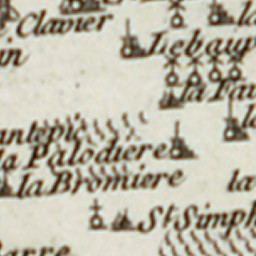 Clavier
la
Lebaup
in
la Fau
antepie
la Palodiere
la
la Bromiere
la
St Simph
Barre